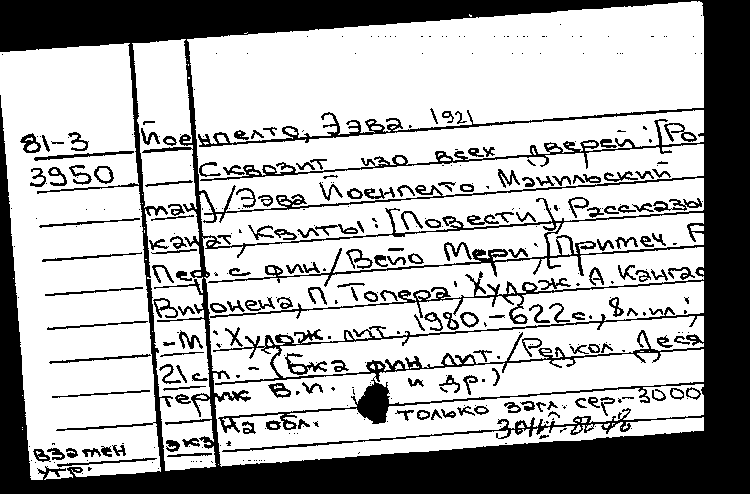 81-3 Йоенпелто, Ээва. 1921
3950 Сквозит изо всех дверей: [Ро-
ман] / Ээва Йоенпелто. Манильский
канат; Квиты: [Повести]; Рассказы
Пер. с фин. / Вейо Мери; [Примеч.
Винонена, П. Топера; Худож. А. Кангас
.-М.: Худож. лит., 1980.-622 с., 8 л. ил.;
21 см. - (Бка фин. лит. / Редкол. Деся
терик В.И. и др.)
На обл. только загл. сер.-3000
взамен экз.
утр.